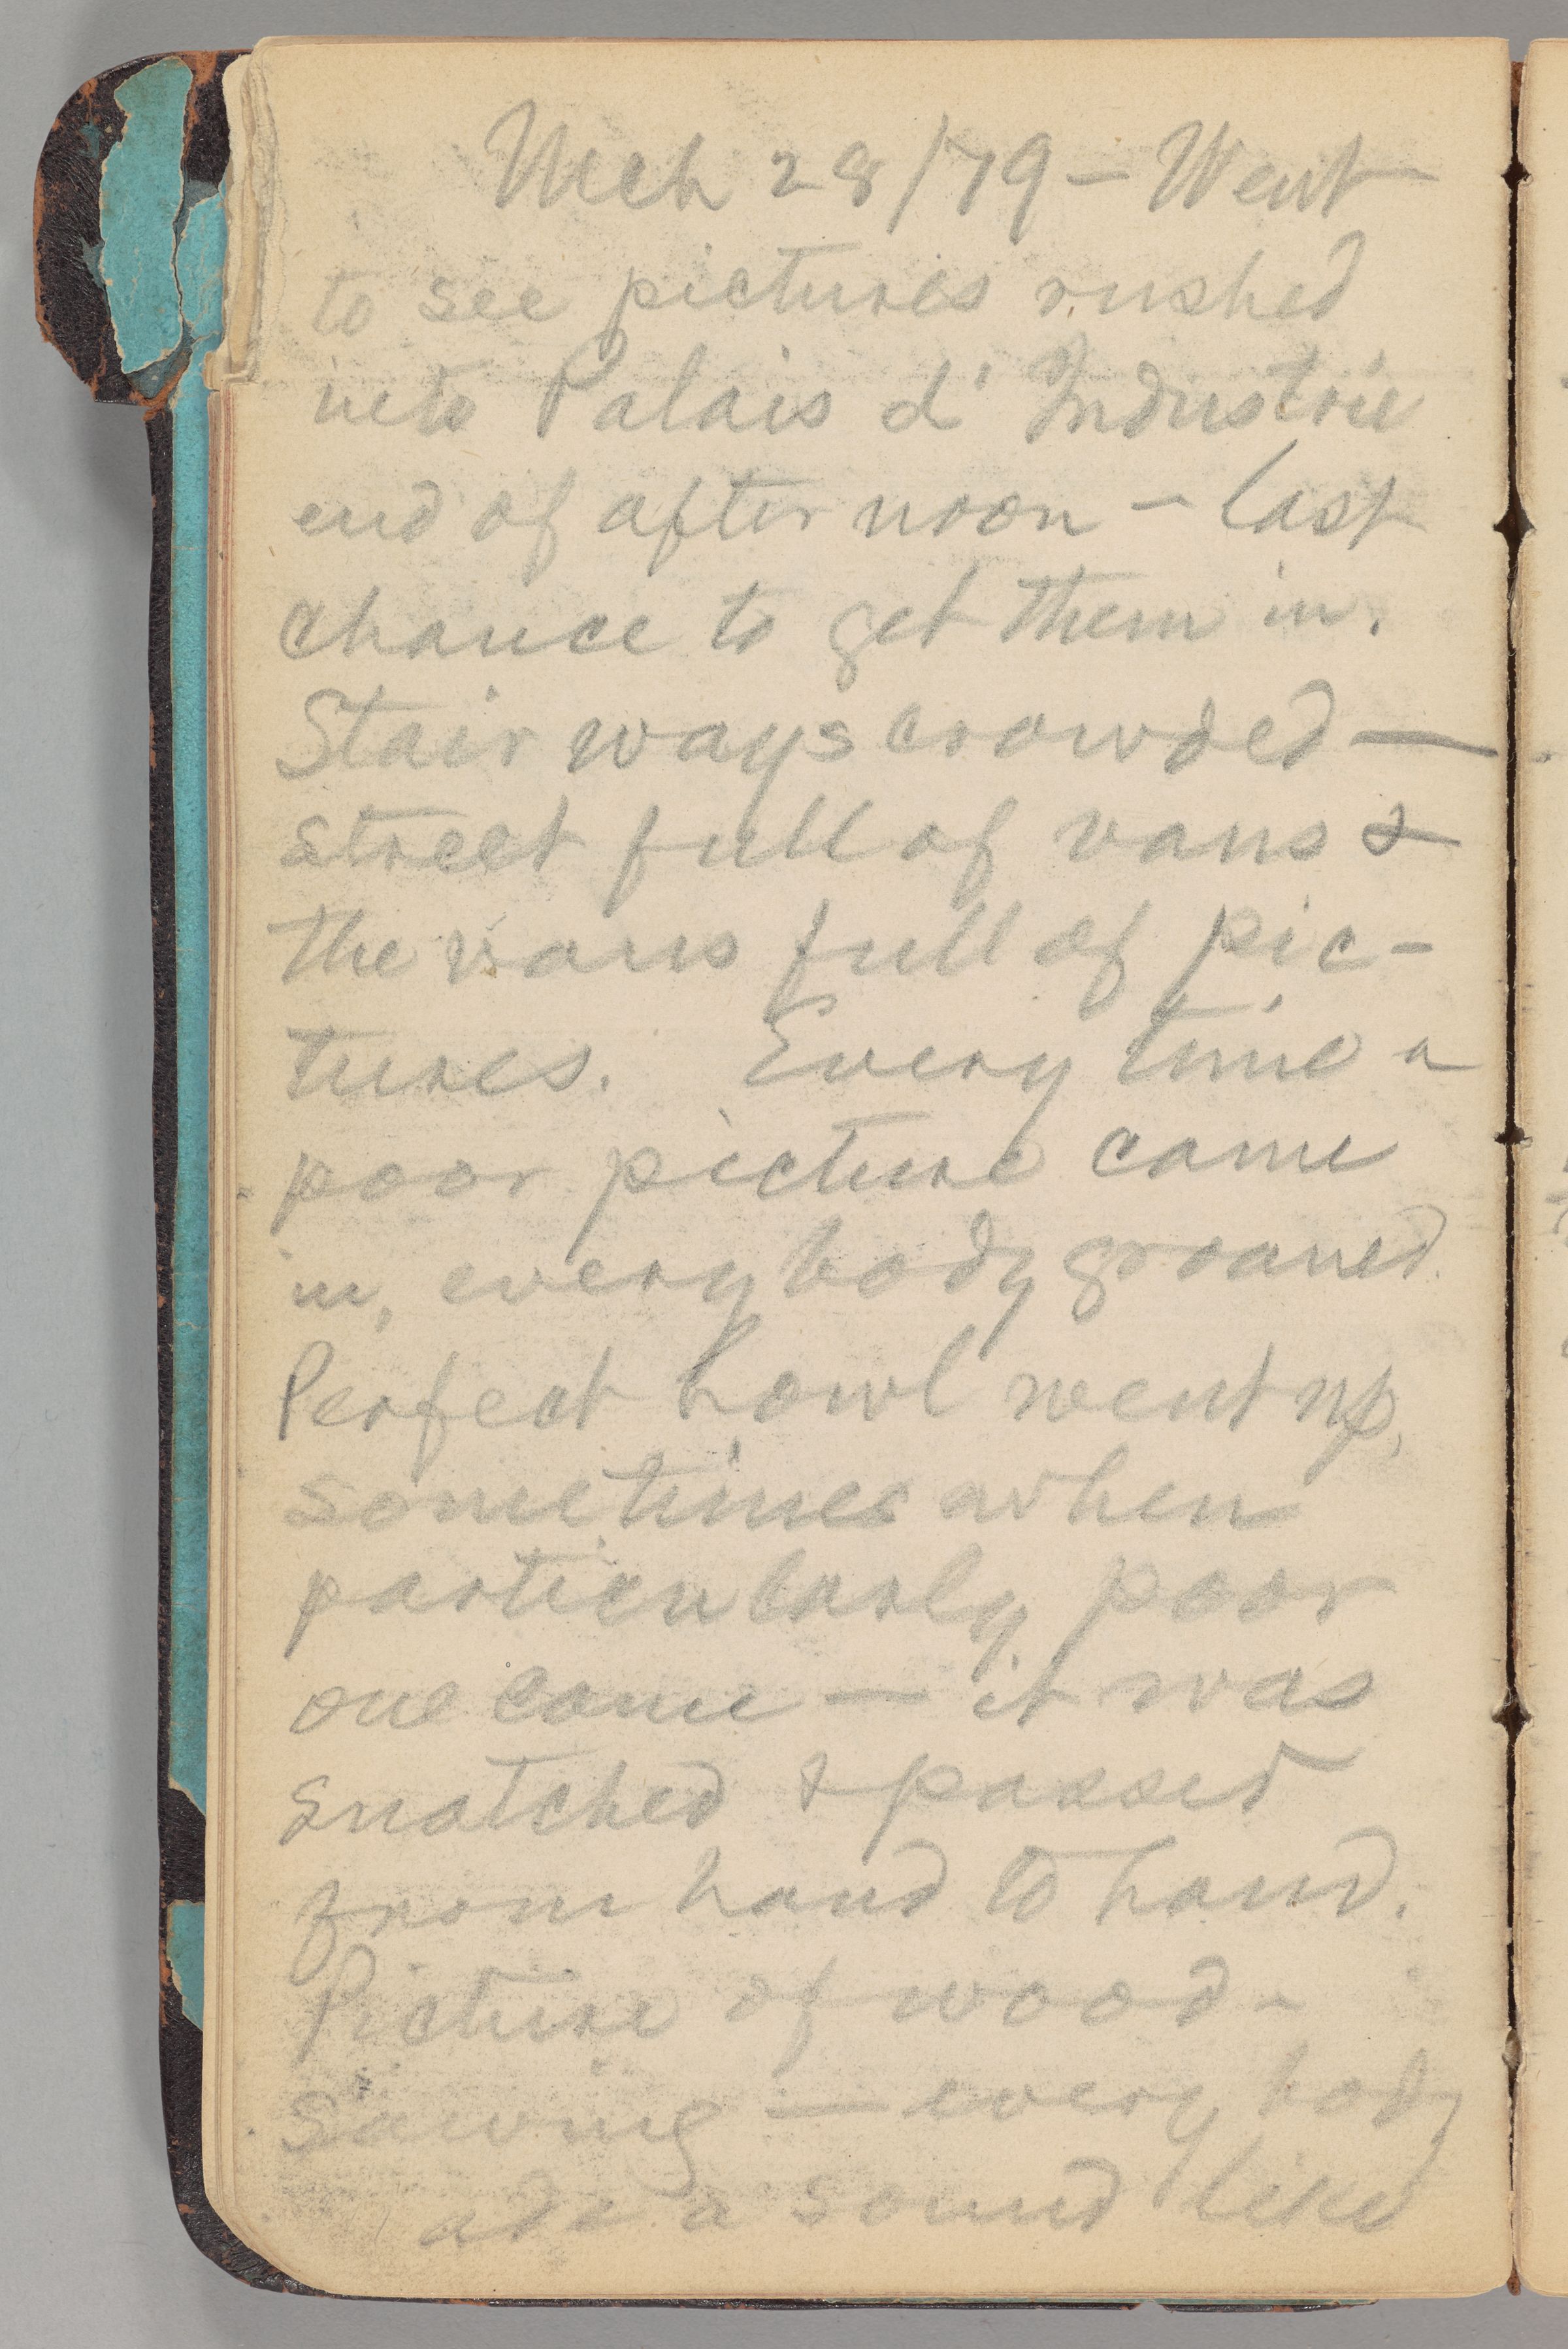 Mch 28/79 – Went
to see pictures rushed
into Palais d' Industrie
end of after noon – last
chance to get them in.
Stair ways crowded —
street full of vans &
the vans full of pic-
tures. Every time a
poor picture came
in, every body groaned.
Perfect howl went up,
sometimes when
particularly poor
one came — it was
snatched & passed
from hand to hand.
Picture of wood-
sawing — every body
made a sound like